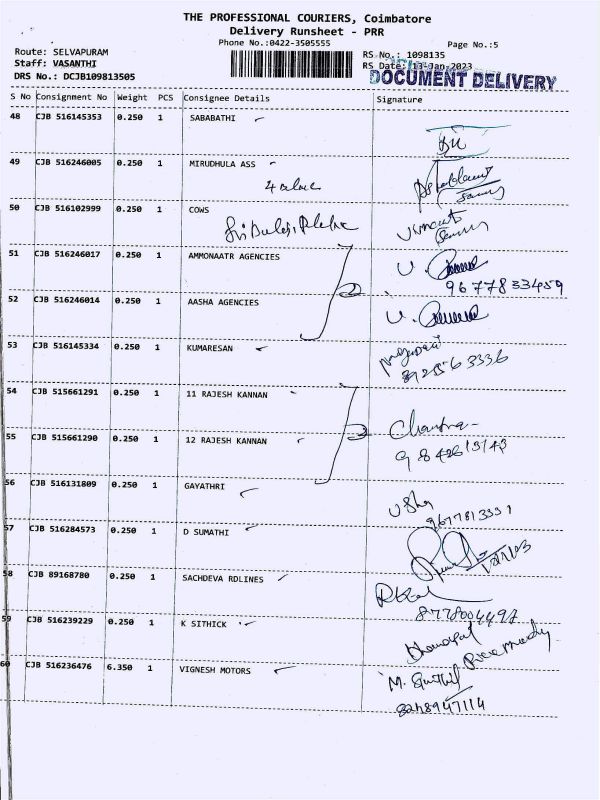 THE PROFESSIONAL COURIERS, Coimbatore
Delivery Runsheet - PRR
Phone No.:0422-3505555
Page No.:5
Route: SELVAPURAM
RS No.: 1098135
Staff: VASANTHI
RS Date: 13-Jan-2023
DRS No.: DCJB109813505
DOCUMENT DELIVERY
S No Consignment No Weight PCS Consignee Details Signature
48 CJB 516145353 0.250 1 SABABATHI
49 CJB 516246005 0.250 1 MIRUDHULA ASS
50 CJB 516102999 0.250 1 COWS
51 CJB 516246017 0.250 1 AMMONAATR AGENCIES
9677833459
52 CJB 516246014 0.250 1 AASHA AGENCIES
53 CJB 516145334 0.250 1 KUMARESAN
54 CJB 515661291 0.250 1 11 RAJESH KANNAN
Chandra
55 CJB 515661290 0.250 1 12 RAJESH KANNAN
56 CJB 516131809 0.250 1 GAYATHRI
Usha
57 CJB 516284573 0.250 1 D SUMATHI
58 CJB 89168780 0.250 1 SACHDEVA RDLINES
8778004497
59 CJB 516239229 0.250 1 K SITHICK
Dhanapal
60 CJB 516236476 6.350 1 VIGNESH MOTORS
M. Senthil
8248947114